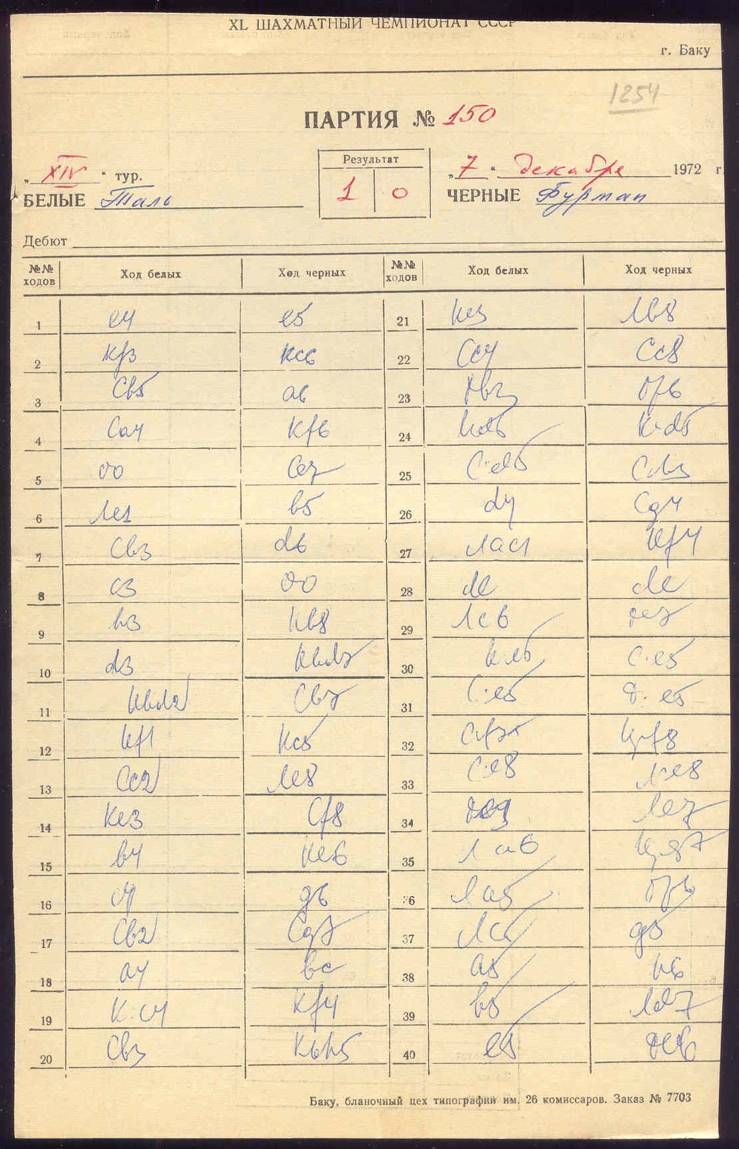 XL ШАХМАТНЫЙ ЧЕМПИОНАТ СССР
г. Баку
1254
ПАРТИЯ № 150
„XIV“ тур. Результат „7“ декабря 1972 г.
БЕЛЫЕ Таль 1 0 ЧЕРНЫЕ Фурман
Дебют
№№ ходов Ход белых Ход черных №№ ходов Ход белых Ход черных
1 e4 e5 21 Ke3 Лb8
2 Kf3 Kc6 22 Cc4 Cc8
3 Cb5 a6 23
4 Ca4 Kf6 24 Kd5 K:d5
5 00 Ce7 25 C:d5
6 Лe1 b5 26 d4 Cg4
7 Cb3 d6 27 Лac1
8 c3 00 28 de de
9 h3 Kb8 29 Лc6
10 d3 Kbd7 30 K:e5 C:e5
11 Kbd2 Cb7 31 C:e5 Ф:e5
12 Kf1 Kc5 32 C:f7+ Kp:f8
13 Cc2 Лe8 33 C:e8 Л:e8
14 Ke3 Cf8 34 Лe7
15 b4 Ke6 35 Л:a6 Kpg7
16 c4 g6 36 Лa5
17 Cb2 Cg7 37 g5
18 a4 bc 38 a5 h6
19 K:c4 Kf4 39 b5 Лd7
20 Cb3 K6h5 40 e5
Баку, бланочный цех типографии им. 26 комиссаров. Заказ № 7703